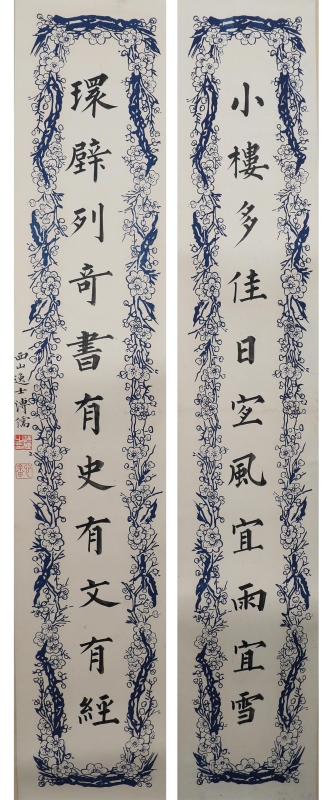 小樓多佳日宐風宜雨宜雪
環壁列奇書有史有文有經
西山逸士溥儒